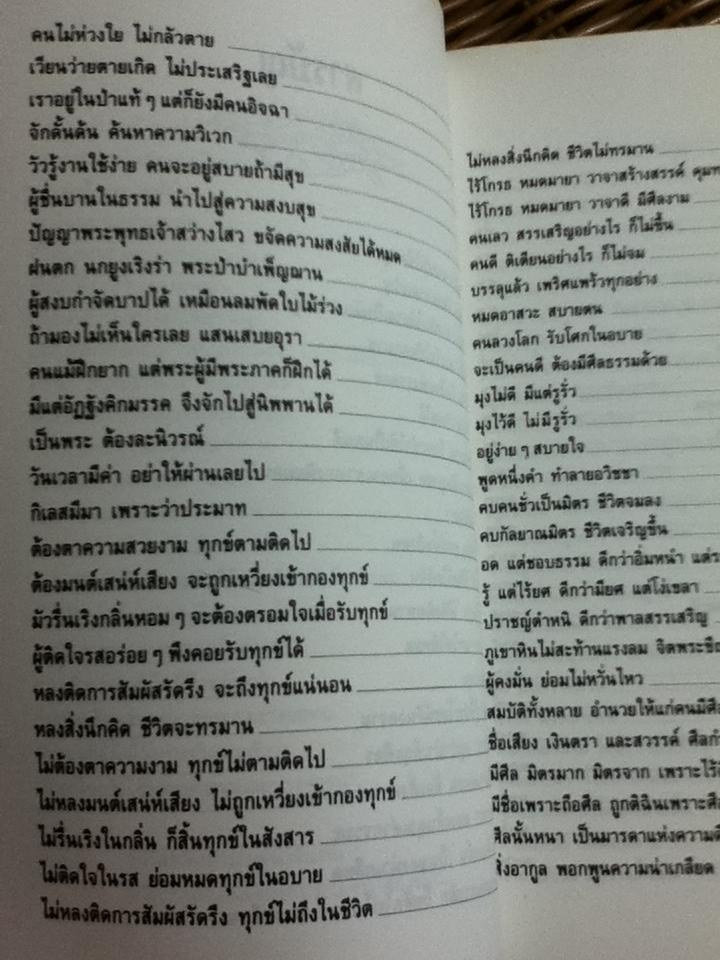 คนไม่ห่วงใย ไม่กลัวตาย
เวียนว่ายตายเกิด ไม่ประเสริฐเลย
เราอยู่ในป่าแท้ ๆ แต่ก็ยังมีคนอิจฉา
จักดั้นด้น ค้นหาความวิเวก
วัวรู้งานใช้ง่าย คนจะอยู่สบายถ้ามีสุข
ผู้ชื่นบานในธรรม นำไปสู่ความสงบสุข
ปัญญาพระพุทธเจ้าสว่างไสว ขจัดความสงสัยได้หมด
ฝนตก นกยูงเริงร่า พระป่าบำเพ็ญฌาน
ผู้สงบกำจัดบาปได้ เหมือนลมพัดใบไม้ร่วง
ถ้ามองไม่เห็นใครเลย แสนเสบยอุรา
คนแม้ฝึกยาก แต่พระผู้มีพระภาคก็ฝึกได้
มีแต่อัฏฐังคิกมรรค จึงจักไปสู่นิพพานได้
เป็นพระ ต้องละนิวรณ์
วันเวลามีค่า อย่าให้ผ่านเลยไป
กิเลสมีมา เพราะว่าประมาท
ต้องตาความสวยงาม ทุกข์ตามติดไป
ต้องมนต์เสน่ห์เสียง จะถูกเหวี่ยงเข้ากองทุกข์
มัวรื่นเริงกลิ่นหอม ๆ จะต้องตรอมใจเมื่อรับทุกข์
ผู้ติดใจรสอร่อย ๆ พึงคอยรับทุกข์ได้
หลงติดการสัมผัสรัดรึง จะถึงทุกข์แน่นอน
หลงสิ่งนึกคิด ชีวิตจะทรมาน
ไม่ต้องตาความงาม ทุกข์ไม่ตามติดไป
ไม่หลงมนต์เสน่ห์เสียง ไม่ถูกเหวี่ยงเข้ากองทุกข์
ไม่รื่นเริงในกลิ่น ก็สิ้นทุกข์ในสังสาร
ไม่ติดใจในรส ย่อมหมดทุกข์ในอบาย
ไม่หลงติดการสัมผัสรัดรึง ทุกข์ไม่ถึงในชีวิต
ไม่หลงสิ่งนึกคิด ชีวิตไม่ทรมาน
ไร้โกรธ หมดมายา วาจาสร้างสรรค์
ไร้โกรธ หมดมายา วาจาดี มีศีลงาม
คนเลว สรรเสริญอย่างไร ก็ไม่ขึ้น
คนดี ติเตียนอย่างไร ก็ไม่จม
บรรลุแล้ว เพริศแพร้วทุกอย่าง
หมดอาสวะ สบายตน
คนลวงโลก รับโศกในอบาย
จะเป็นคนดี ต้องมีศีลธรรมด้วย
มุงไม่ดี มีแต่รูรั่ว
มุงไว้ดี ไม่มีรูรั่ว
อยู่ง่าย ๆ สบายใจ
พูดหนึ่งคำ ทำลายอวิชชา
คบคนชั่วเป็นมิตร ชีวิตจมลง
คบกัลยาณมิตร ชีวิตเจริญขึ้น
อด แต่ชอบธรรม ดีกว่าอิ่มหนำ
รู้ แต่ไร้ยศ ดีกว่ามียศ แต่โง่เขลา
ปราชญ์ตำหนิ ดีกว่าพาลสรรเสริญ
ภูเขาหินไม่สะท้านแรงลม
ผู้คงมั่น ย่อมไม่หวั่นไหว
สมบัติทั้งหลาย อำนวยให้แก่คนมีศีล
ชื่อเสียง เงินตรา และสวรรค์
มีศีล มิตรมาก มิตรจาก
มีชื่อเพราะถือศีล ถูกติฉินเพราะ
ศีลนั้นหนา เป็นมารดาแห่งความดี
พอกพูนความน่าเกลียด